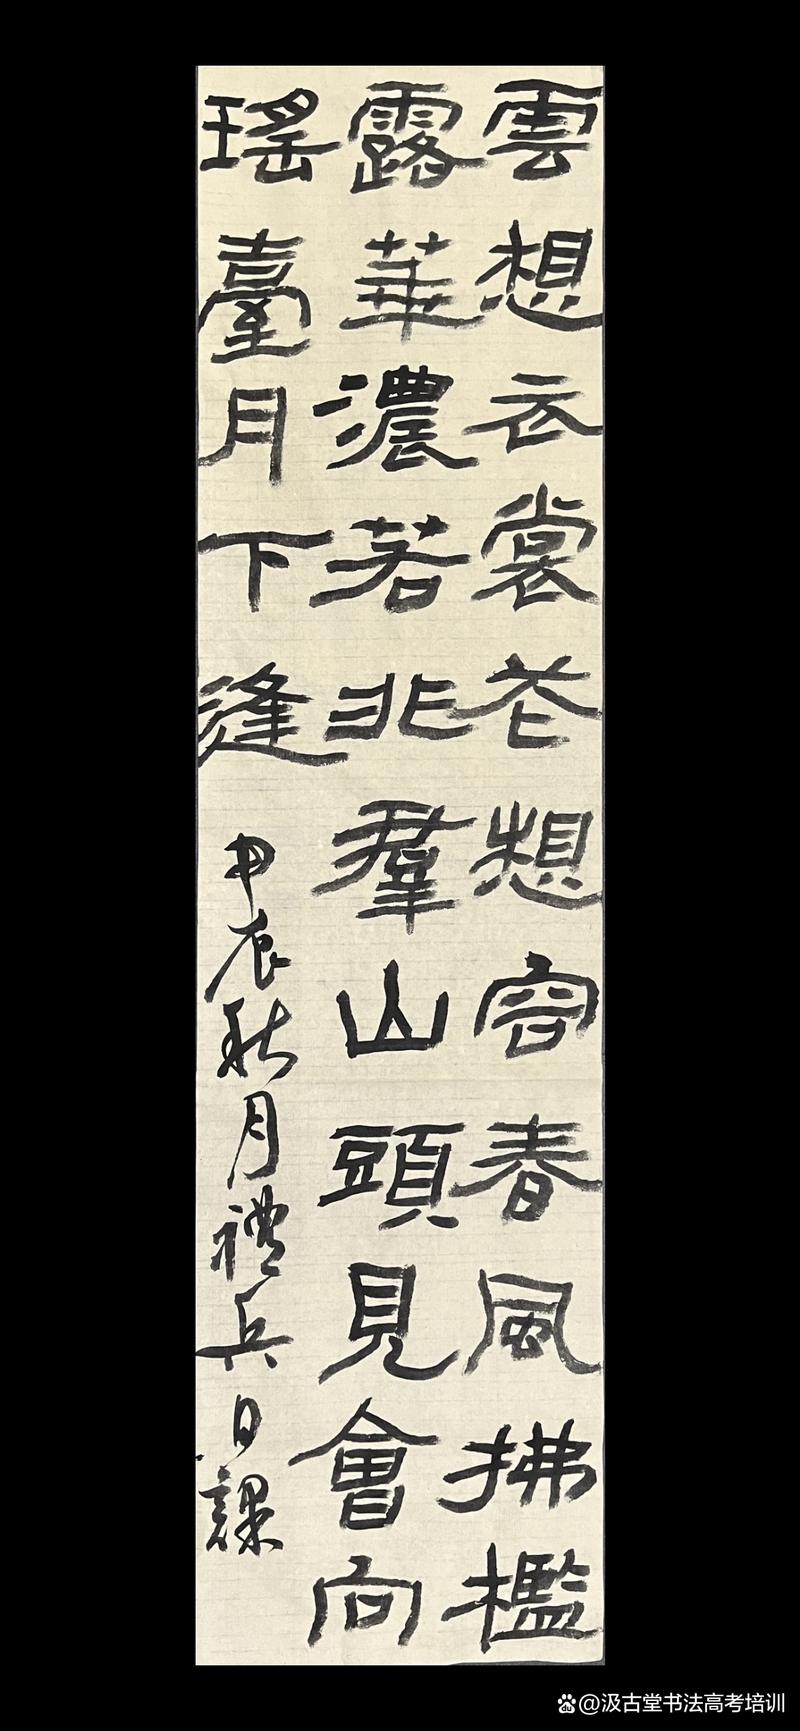 雲想衣裳花想容春風拂檻
露華濃若非羣山頭見會向
瑤臺月下逢
甲辰秋月禮兵日課
@汲古堂书法高考培训